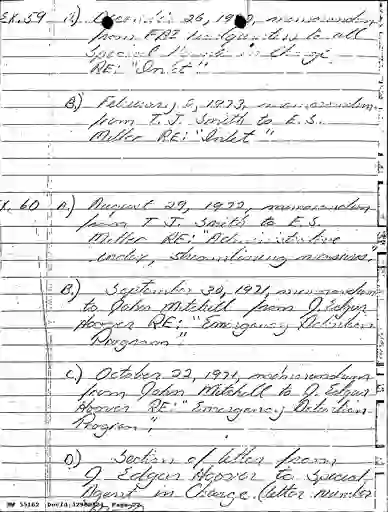 EX. 59 A.) December 26, 1972, memorandum
from FBI Headquarters to all
Special Agents in Charge
RE: "Inlet"
B.) February 8, 1973, memorandum
from T. J. Smith to E. S.
Miller RE: "Inlet"
X. 60 A.) August 29, 1972, memorandum
from T. J. Smith to E. S.
Miller RE: Administrative
index, streamlining measures."
B.) September 30, 1971, memorandum
to John Mitchell from J. Edgar
Hoover RE: "Emergency Detention
Program".
C.) October 22, 1971, memorandum
from John Mitchell to J. Edgar
Hoover RE: "Emergency Detention
Program",
D.) Section of letter from
J. Edgar Hoover to Special
Agent in Charge (letter number
HW 55162 DocId: Page